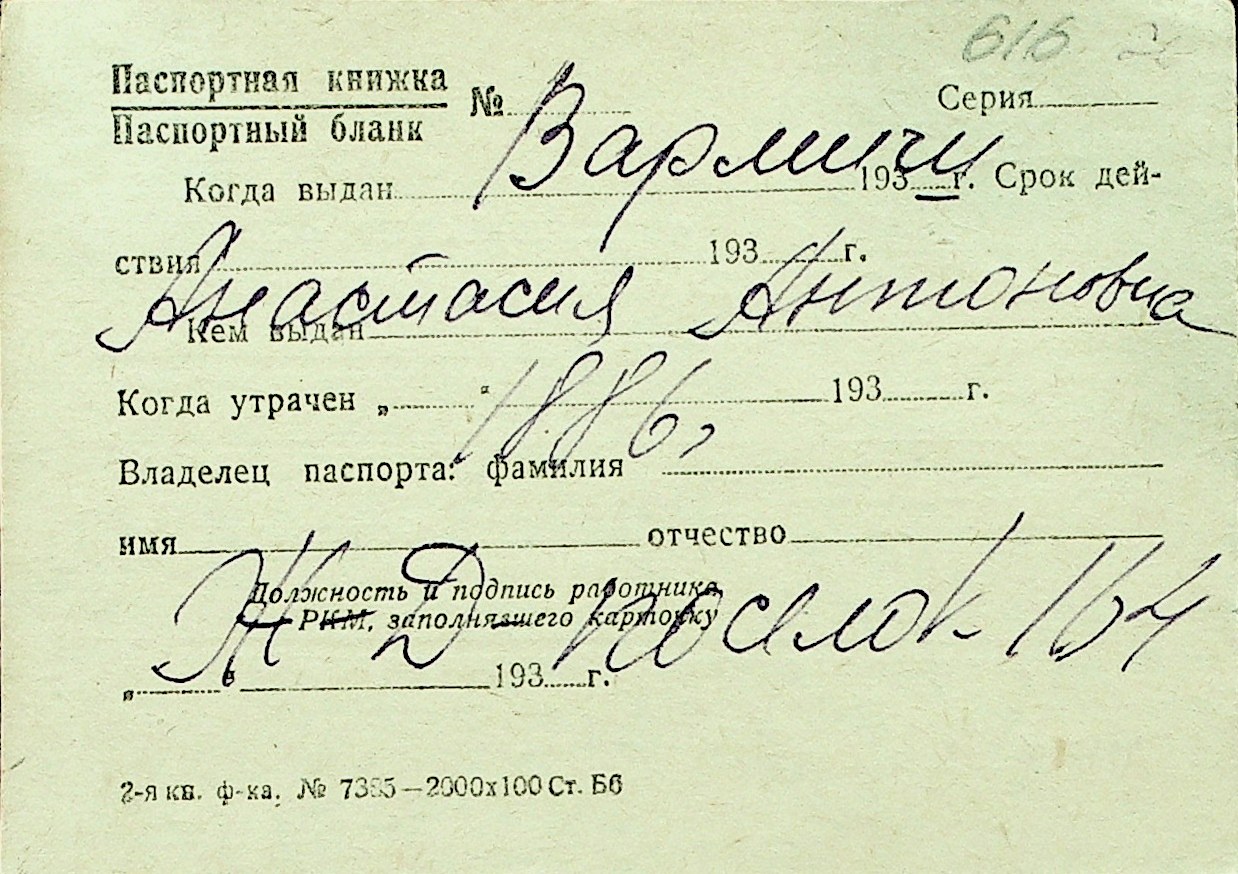 616
Паспортная книжка
Паспортный бланк
№ Серия
Вармичи
Когда выдан 193 г. Срок дей-
ствия 193 г.
Анастасия Антоновна
Кем выдан
Когда утрачен „ “ 193 г.
1886,
Владелец паспорта: фамилия
имя отчество
Должность и подпись работника
РКМ, заполнявшего карточку
Ж Д поселок 164
„ “ 193 г.
2-я кв. ф-ка. № 7385—2000х100 Ст. Б6